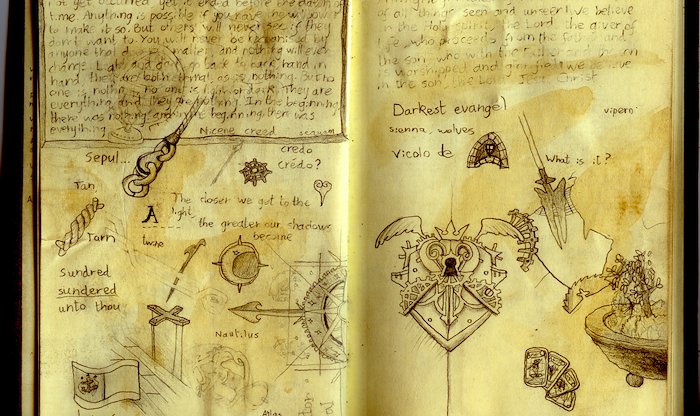 not yet occurred yet it ended before the dawn of
time. Anything is possible if you have
to make it so. But others will never see if they
don't want to. You will never be recognised by
anyone that does matter, and nothing will ever
change. Light and dark go back to back hand in
hand, they are both
one is nothing. No one is light or dark. They are
everything and they are nothing. In the beginning
there was nothing and in the beginning there was
everything.
Nicene creed
Sepul...
credo
crédo?
Tan
The closer we got to the
light,
A
the greater our shadows
become
Tarn
Sundred
sundered
unto thou
Nautilus
Atlas
of all things seen and unseen. We believe
in the Holy Spirit, the Lord, the giver of
life, who proceeds from the Father and
the son, who with the Father and the son
is worshipped and glorified. We believe
in the son, Jesus Christ
Darkest evangel
viperi
sienna, wolves
Vicolo de
What is it?